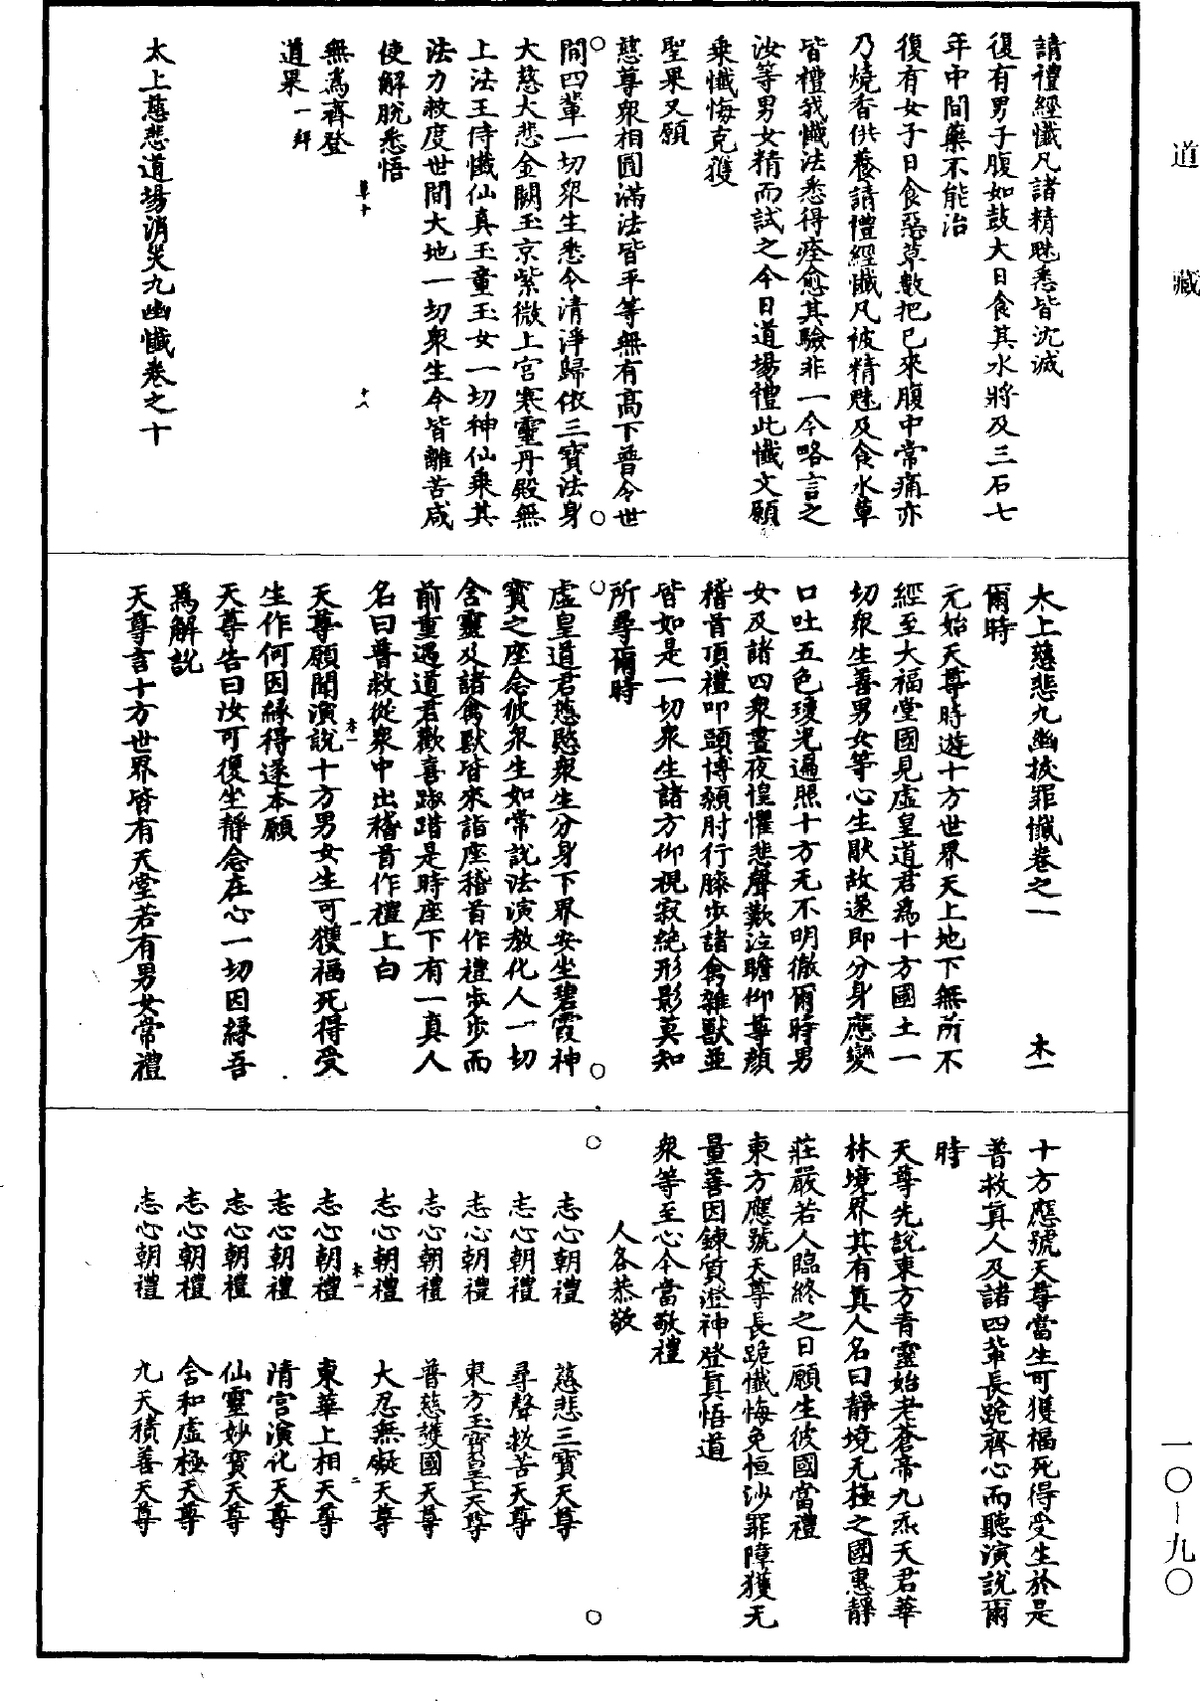 道藏
請禮經懺凡諸精魅悉皆沈滅
復有男子腹如鼓大日食其水將及三石七
年中間藥不能治
復有女子日食惡草數把已來腹中常痛亦
乃燒香供養請禮經懺凡被精魅及食水草
皆禮我懺法悉得痊愈其驗非一今略言之
汝等男女精而試之今日道場禮此懺文願
乘懺悔克獲
聖果又願
慈尊衆相圓滿法皆平等無有高下普令世
間四輩一切衆生悉令清淨歸依三寶法身
大慈大悲金闕玉京紫微上宮寒靈丹殿無
上法王侍懺仙真玉童玉女一切神仙乘其
法力救度世間大地一切衆生今皆離苦咸
使解脫悉悟
草十 十八
無爲齊登
道果一拜
太上慈悲道場消災九幽懺卷之十
太上慈悲九幽拔罪懺卷之一 木一
爾時
元始天尊時遊十方世界天上地下無所不
經至大福堂國見虛皇道君爲十方國土一
切衆生善男女等心生猒故遂即分身應變
口吐五色瓊光遍照十方无不明徹爾時男
女及諸四衆晝夜惶懼悲聲歎泣瞻仰尊顔
稽首頂禮叩頭博頰肘行膝步諸禽雜獸並
皆如是一切衆生諸方仰視寂絶形影莫知
所尋爾時
虛皇道君慈愍衆生分身下界安坐碧霞神
寶之座念彼衆生如常說法演教化人一切
含靈及諸禽獸皆來詣座稽首作禮步步而
前重遇道君歡喜踧踖是時座下有一真人
名曰普救從衆中出稽首作禮上白
木一 一
天尊願聞演說十方男女生可獲福死得受
生作何因緣得遂本願
天尊告曰汝可復坐靜念在心一切因緣吾
爲解說
天尊言十方世界皆有天堂若有男女常禮
十方應號天尊當生可獲福死得受生於是
普救真人及諸四輩長跪齊心而聽演說爾
時
天尊先說東方青靈始老蒼帝九炁天君華
林境界其有真人名曰靜境无極之國惠靜
莊嚴若人臨終之日願生彼國當禮
東方應號天尊長跪懺悔免恒沙罪障獲无
量善因鍊質澄神登真悟道
衆等至心今當敬禮
人各恭敬
志心朝禮 慈悲三寶天尊
志心朝禮 尋聲救苦天尊
志心朝禮 東方玉寶皇上天尊
志心朝禮 普慈護國天尊
志心朝禮 大忍無礙天尊
木一 二
志心朝禮 東華上相天尊
志心朝禮 隋宫演化天尊
志心朝禮 仙靈妙寶天尊
志心朝禮 含和虛極天尊
志心朝禮 九天積善天尊
一〇-九〇